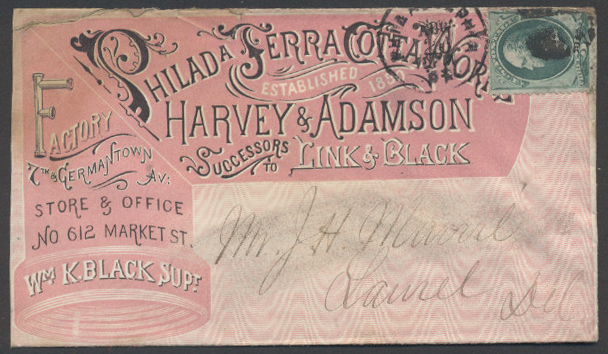 PHILADA TERRA COTTA WORKS
ESTABLISHED 1850
HARVEY & ADAMSON
SUCCESSORS TO LINK & BLACK
FACTORY
7TH & GERMANTOWN AV:
STORE & OFFICE
NO 612 MARKET ST.
WM K. BLACK SUPT
Mr. J. H.
Laurel Del